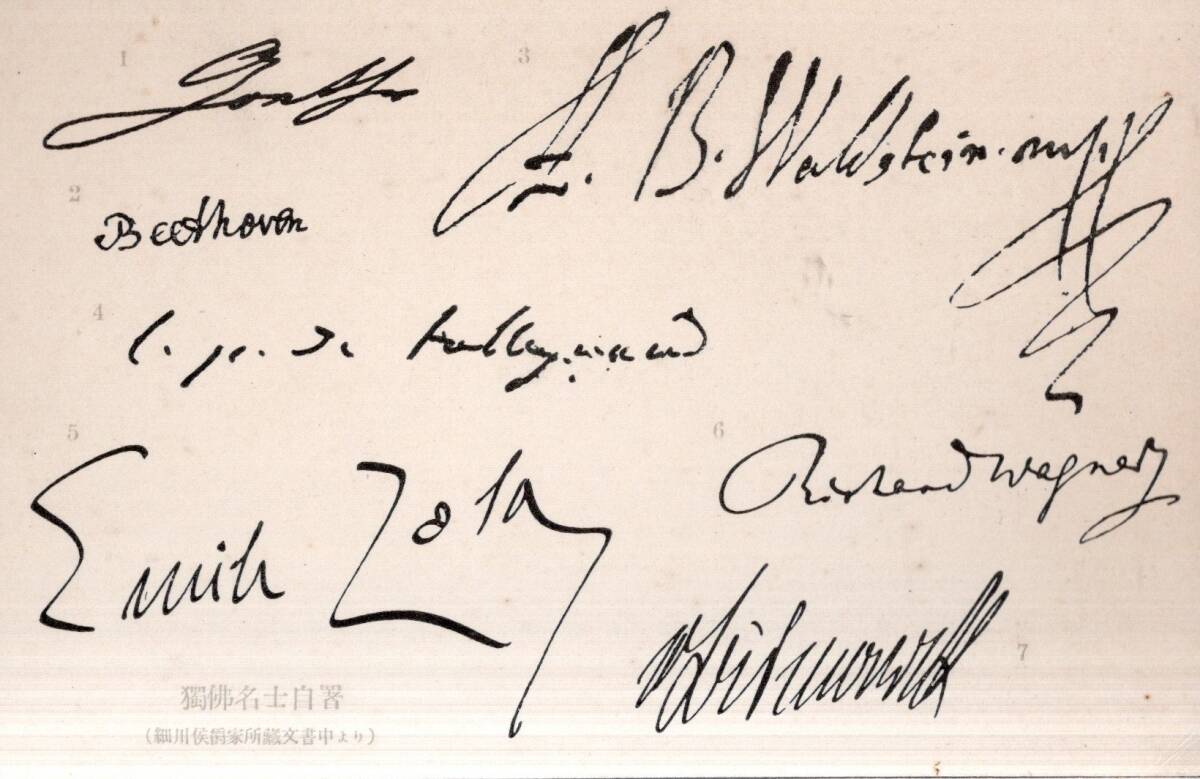 1
Goethe
3
B. Waldstein.
2
Beethoven
4
talleyrand
5
Emile Zola
6
Richard Wagner
7
v Bismarck
獨佛名士自署
(細川侯爵家所藏文書中より)